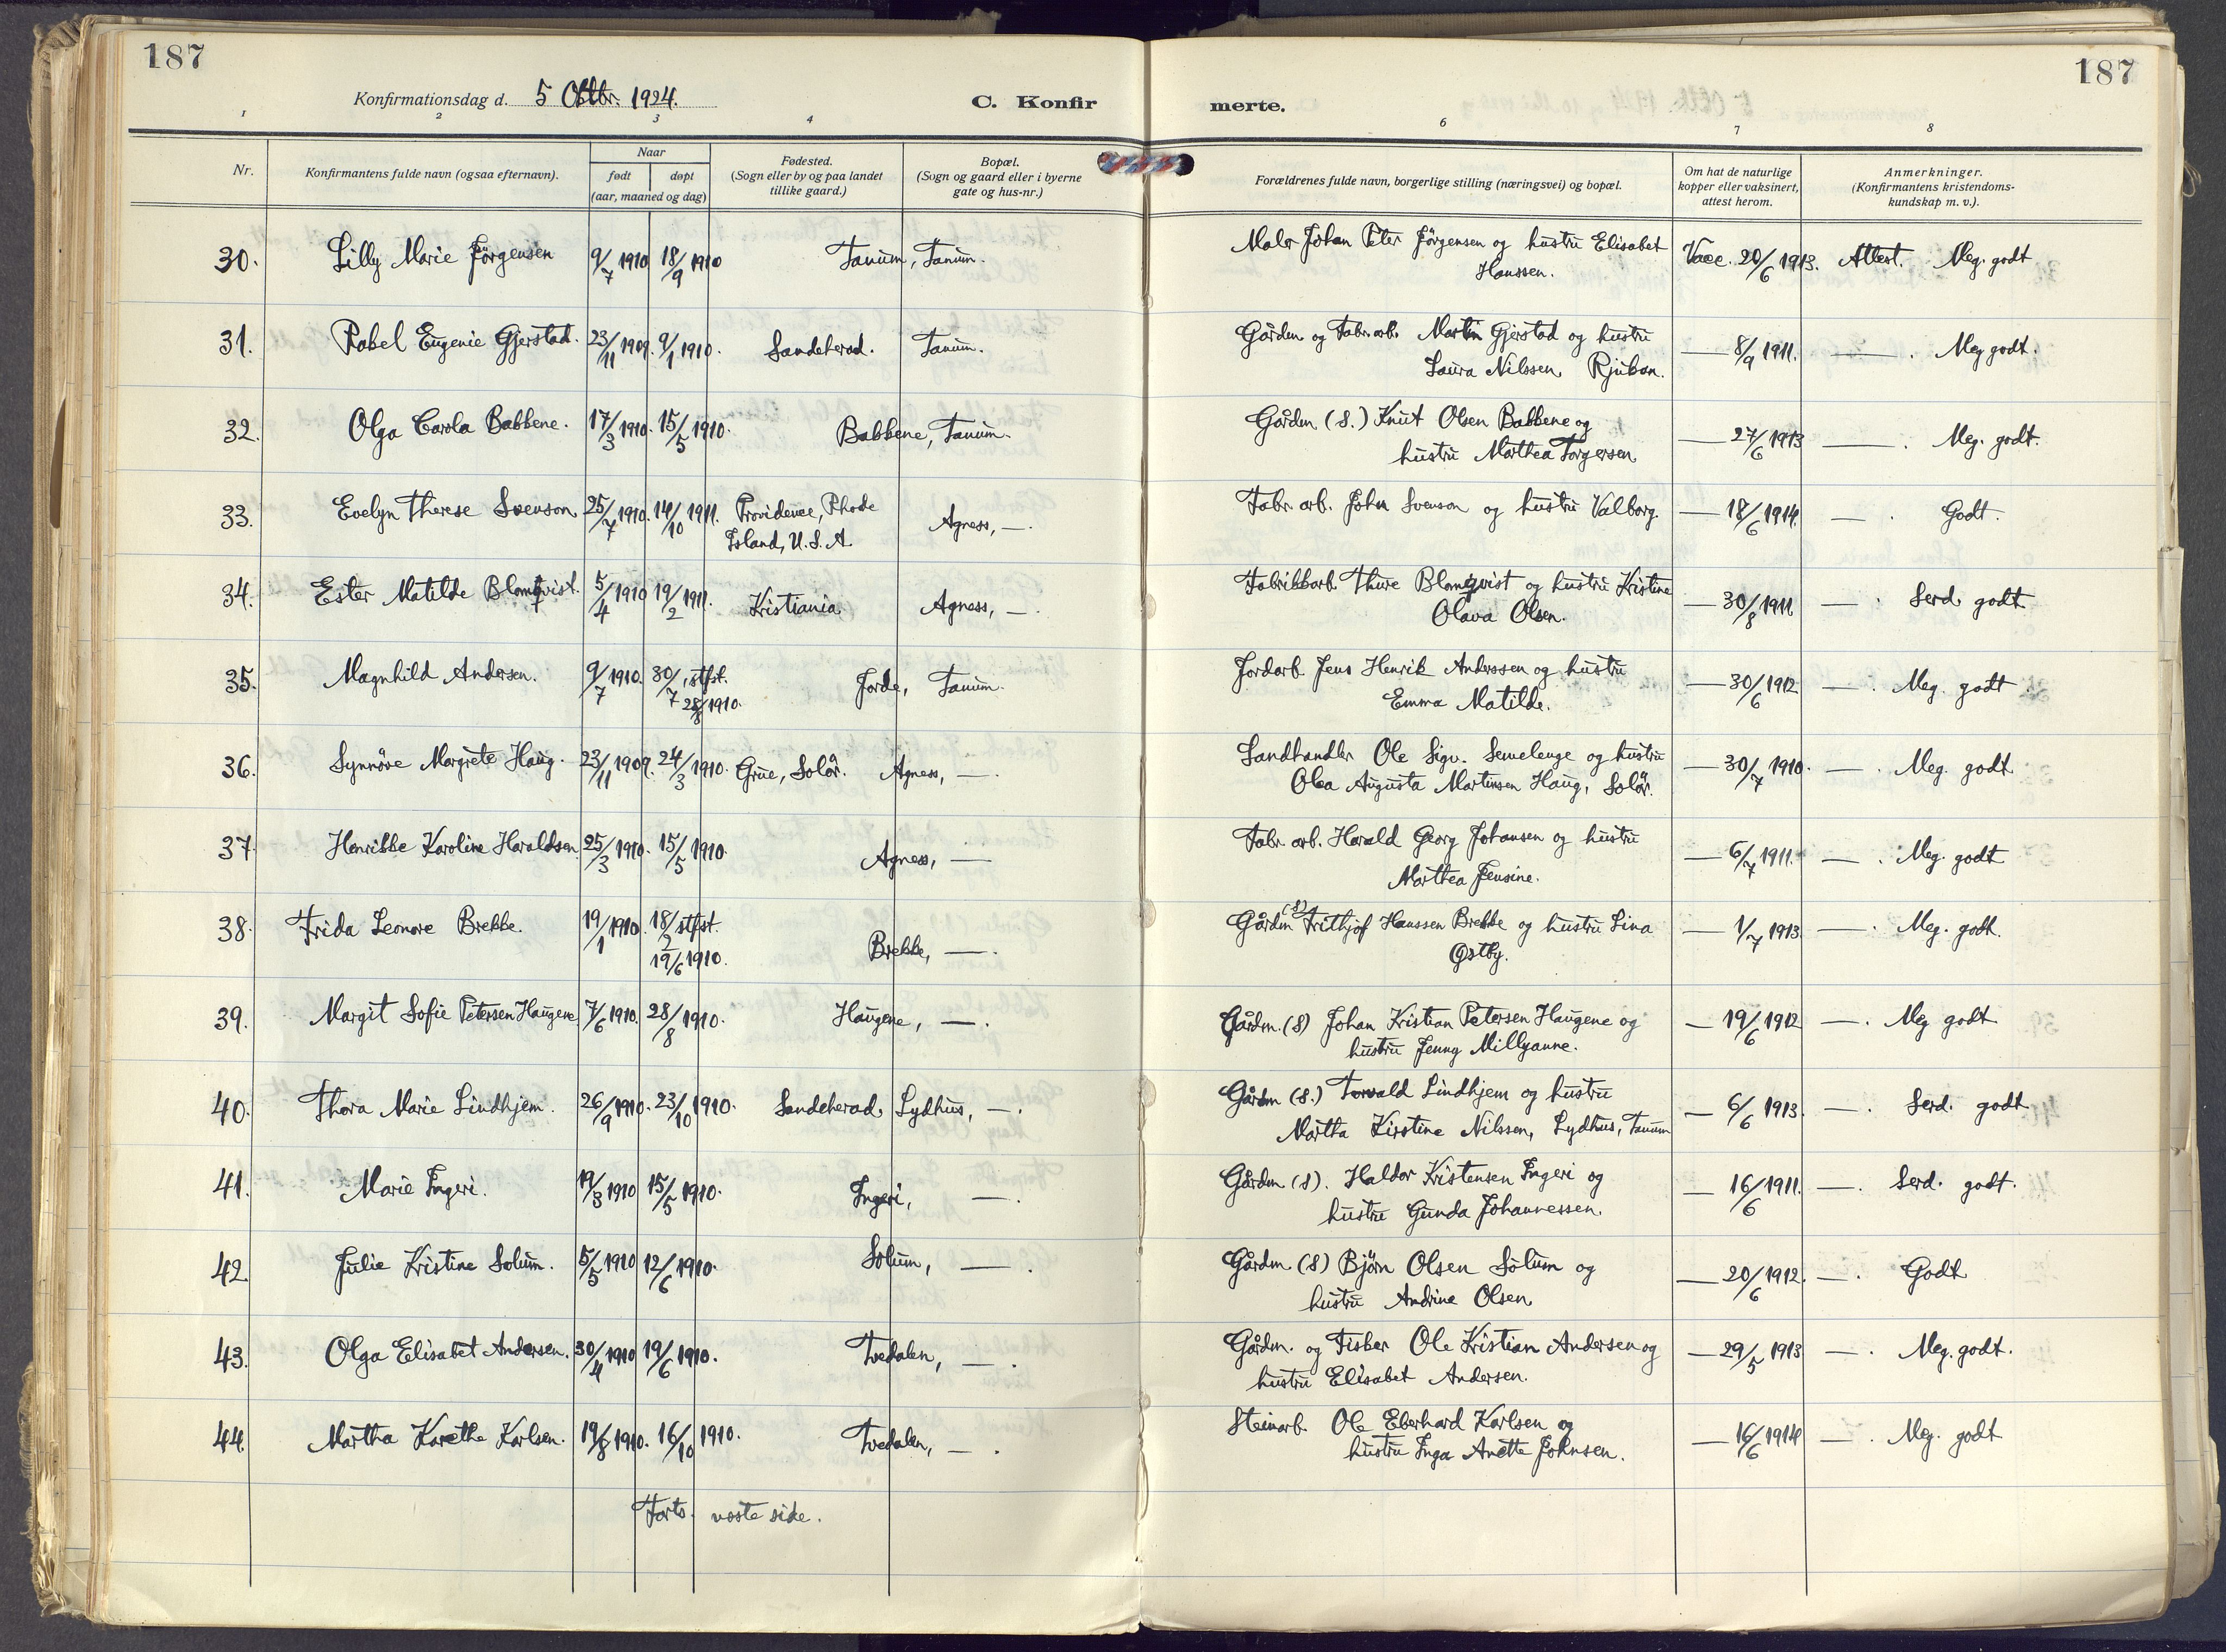 187
187
Konfirmationsdag d. 5 Oktbr. 1924.
C. Konfirmerte.
1 2 3 4 6 7 8
Nr.
Konfirmantens fulde navn (ogsaa efternavn).
Naar
født døpt
(aar, maaned og dag)
Fødested.
(Sogn eller by og paa landet
tillike gaard.)
Bopæl.
(Sogn og gaard eller i byerne
gate og hus-nr.)
Forældrenes fulde navn, borgerlige stilling (næringsvei) og bopæl.
Om hat de naturlige
kopper eller vaksinert,
attest herom.
Anmerkninger.
(Konfirmantens kristendoms-
kundskap m. v.).
30. Lilly Marie Jørgensen 9/7 1910 18/9 1910 Tanum, Tanum. Maler Johan Peter Jörgensen og hustru Elisabet
Hanssen. Vacc. 20/6 1913. Attest. Meg. godt
31. Rakel Eugenie Gjerstad. 23/11 1909. 9/1 1910. Sandeherad. Tanum. Gårdm. og Fabr.arb. Martin Gjerstad og hustru
Laura Nilssen, Rjukan. — 8/9 1911. — . Meg godt.
32. Olga Carola Bakkene. 17/3 1910. 15/5 1910. Bakkene, Tanum. Gårdm. (S.) Knut Olsen Bakkene og
hustru Marthea Torgersen. — 27/6 1913 — . Meg. godt.
33. Evelyn Therese Svenson 25/7 1910. 14/10 1911. Providence, Rhode
Island, U.S.A. Agness, —. Fabr. arb. John Svenson og hustru Valborg. — 18/6 1914. — . Godt.
34. Ester Matilde Blomqvist. 5/4 1910 19/2 1911. Kristiania Agness, —. Fabrikkarb. Thure Blomqvist og hustru Kristine
Olava Olsen. — 30/8 1911. — . Serd. godt
35. Magnhild Andersen. 9/7 1910. 30/7, stfst.
28/8 1910. Jorde, Tanum. Jordarb. Jens Henrik Anderssen og hustru
Emma Matilde. — 30/6 1912 — . Meg. godt
36. Synnöve Margrete Haug. 23/11 1909. 24/3 1910. Grue, Solör. Agness, —. Landhandler Ole Sigv. Semelenge og hustru
Olea Augusta Martinsen Haug, Solör. — 30/7 1910. — . Meg. godt
37. Henrikke Karoline Haraldsen. 25/3 1910. 15/5 1910. Agness, — Fabr. arb. Harald Georg Johansen og hustru
Marthea Jensine. — 6/7 1911. — . Meg. godt
38. Frida Leonore Brekke. 19/1 1910. 18/2 stfst.
19/6 1910. Brekke, —. Gårdm (S) Frithjof Hanssen Brekke og hustru Lina
Østby. — 1/7 1913 — . Meg. godt.
39. Margit Sofie Petersen Haugene. 7/6 1910. 28/8 1910. Haugene, —. Gårdm. (S) Johan Kristian Petersen Haugene og
hustru Jenny Millyanne. — 19/6 1912 — . Meg godt
40. Thora Marie Lindhjem. 26/9 1910. 23/10 1910. Sandeherad. Lydhus, —. Gårdm (S.) Torvald Lindhjem og hustru
Martha Kirstine Nilssen, Lydhus, Tanum — 6/6 1913. — . Serd. godt
41. Marie Ingeri. 19/3 1910 15/5 1910. Ingeri, —. Gårdm (S). Haldor Kristensen Ingeri og
hustru Gunda Johannessen. — 16/6 1911. — . Serd. godt.
42. Julie Kristine Solum. 5/5 1910 12/6 1910. Solum, —. Gårdm (S) Björn Olsen Solum og
hustru Andrine Olsen — 20/6 1912. — . Godt
43. Olga Elisabet Andersen. 30/4 1910 19/6 1910. Tvedalen, —. Gårdm. og Fisker Ole Kristian Andersen og
hustru Elisabet Andersen. — 29/5 1913 — . Meg. godt.
44. Martha Karethe Karlsen. 19/8 1910. 16/10 1910. Tvedalen, —. Steinarb. Ole Eberhard Karlsen og
hustru Inga Anette Johnsen. — 16/6 1914 — . Meg. godt
Forts. næste side.